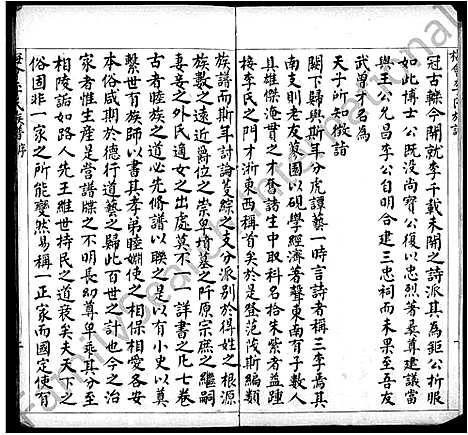 冠古轢今開就李千載未開之詩派其為鉅公折服
如此博士公既没尚寳公復以忠烈著㐮尊建議當
與王公允昌李公自明合建三忠祠而未果至吾友
武曽才名為
天子所知徴詣
闕下歸與斯年分虎譚藝一時言詩者稱三李焉其
南支則老友蒿園以硯學經濟著聲東南有子數人
具雄傑淹貫之才登諸生中取科名拾朱紫者益踵
接李氏之門才浙東西稱首矣於是登范陵斯編類
族譜而斯年討論蕆綜之支分派别於得姓之根源
族數之遠近爵位之崇卑墳墓之阡原宗庶之繼嗣
妻妾之外氏適女之出處莫不一一詳書之凡七卷
古者睦族之道必先脩譜以聯之是以有小史以奠
繫世百族師以書其孝弟睦婣使之相保相愛各安
本俗咸期於德行道藝之歸此百世之計也今之治
家者性生産是營譜牒之不明長幼尊卑乖其分至
相陵詬如路人先王維世持民之道衰矣夫天下之
俗固非一家之所能變然易稱一正家而國定使有